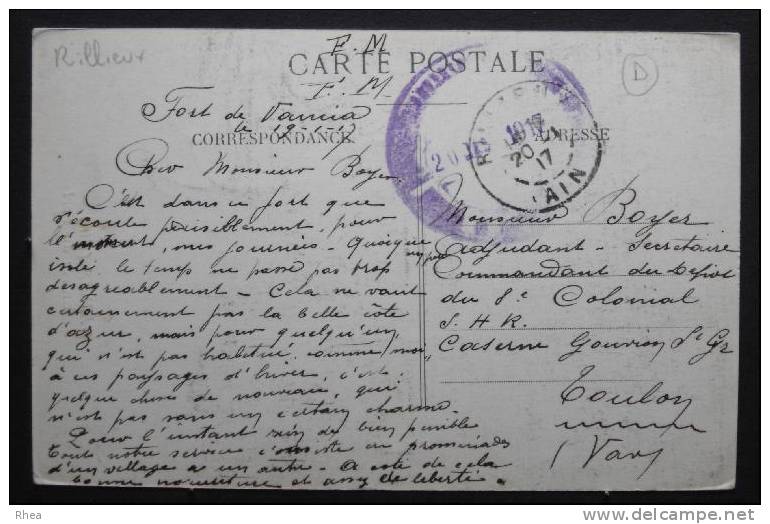 Rillieux
F. M
CARTE POSTALE
F. M
D
Fort de Vancia
le 19-1-17
CORRESPONDANCE
ADRESSE
20 1917
20
17
AIN
Cher Monsieur Boyer
C'est dans ce fort que
s'écoule paisiblement, pour
le moment, mes journées - Quoique un peu
isolé, le temps ne passe pas trop
desagreablement - Cela ne vaut
certainement pas la belle côte
d'azur, mais pour quelqu'un
qui n'est pas habitué, comme moi,
à ces paysages d'hiver, c'est
quelque chose de nouveau, qui
n'est pas sans un certain charme -
Pour l'instant rien de bien penible
toute notre service consiste en promenades
d'un village a un autre - A coté de cela
bonne nourriture et assez de liberté.
Monsieur Boyer
Adjudant - Secretaire
Commandant du Depot
du 8e Colonial
S.H.R.
Caserne Gouvion St Cyr
Toulon
(Var)
Rhea
delcampe.net